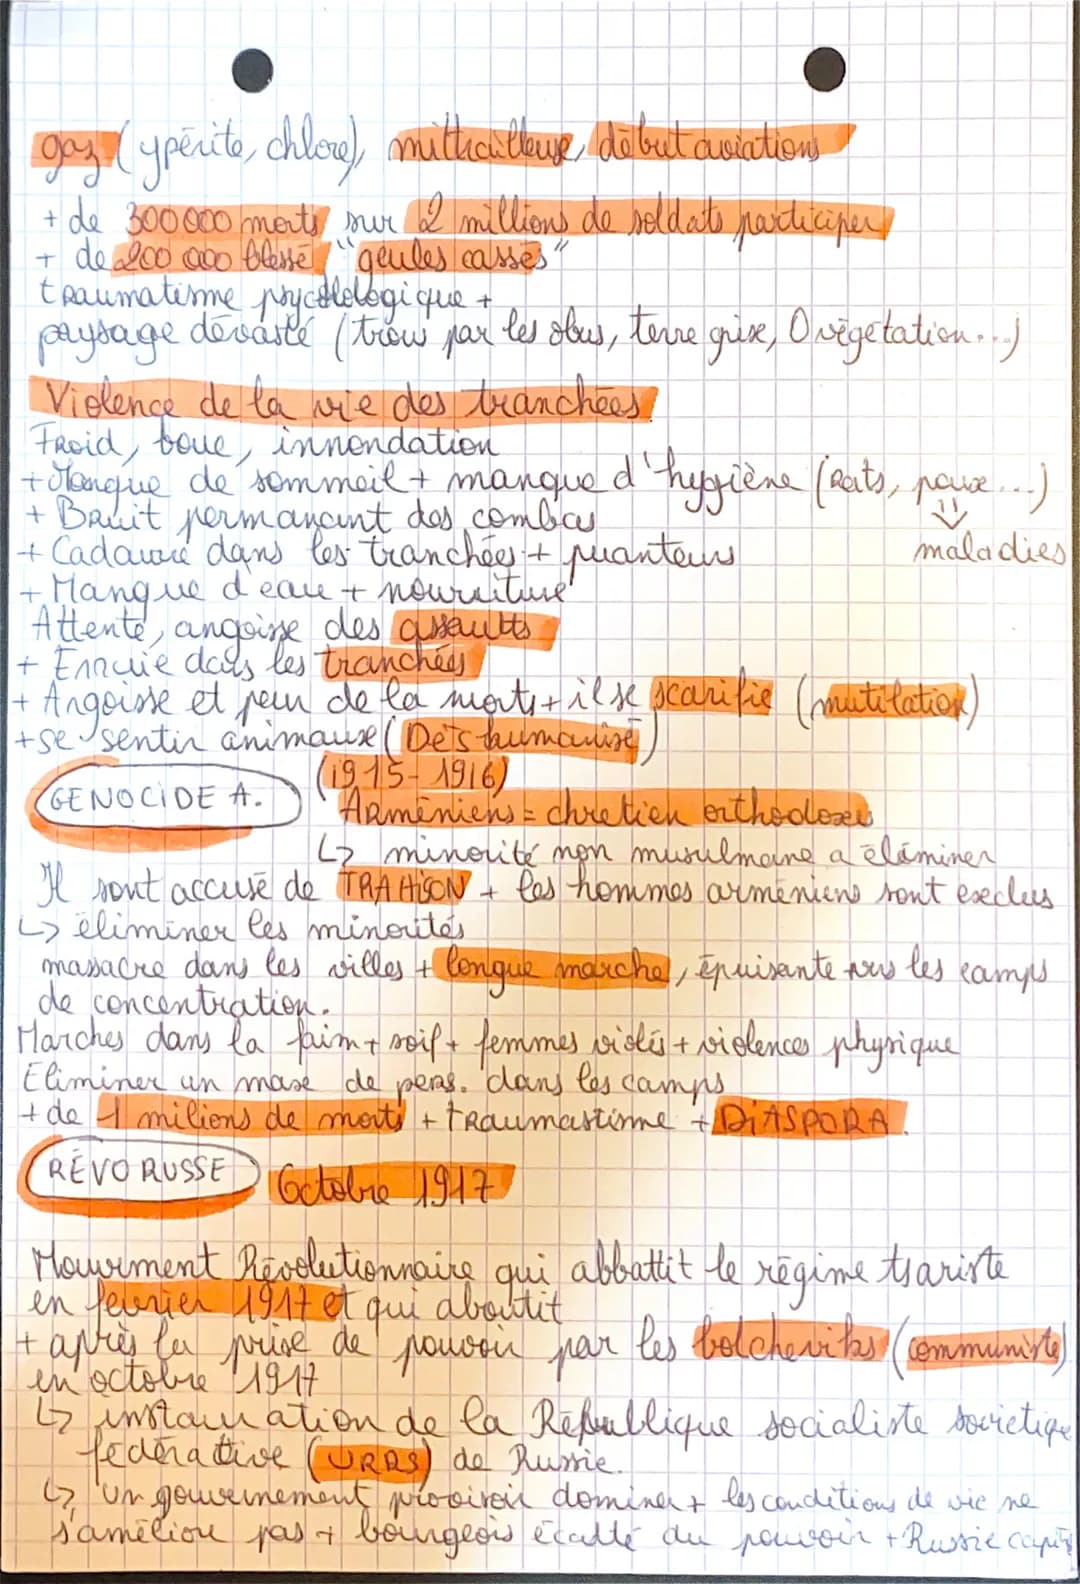 gaz (ypérite, chlore), mithailleuse, début aviations
+ de 300 000 morts sur 2 millions de soldats participer
+ de 200 000 blessé "geules cassés"
traumatisme psycologique +
paysage dévasté (trous par les obus, terre grise, 0 végétation...)
Violence de la vie des tranchées
Froid, boue, innondation
+ Manque de sommeil + manque d'hygiène (Rats, poux...)
+ Bruit permanant des combas
+ Cadavre dans les tranchées + puanteurs
maladies
+ Manque d'eau + nourriture
Attente, angoisse des assauts
+ Ennuie dans les tranchées
+ Angoisse et peur de la morts + il se scarifie (mutilation)
+ se sentir animaux (Dés humanisé)
GENOCIDE A. (1915-1916)
Arméniens = chretien orthodoxes
↳ minorité non musulmane a éliminer
Il sont accusé de TRAHISON + les hommes arméniens sont exclus
↳ éliminer les minorités
massacre dans les villes + longue marche, épuisante vers les camps
de concentration.
Marches dans la faim + soif + femmes violés + violences physique
Eliminer un max de pers. dans les camps
+ de 1 milions de morts + traumastisme + DIASPORA.
RÉVO RUSSE Octobre 1917
Mouvment Révolutionnaire qui abbattit le régime tsariste
en fevrier 1917 et qui aboutit
+ après la prise de pouvoir par les bolcheviks (communiste)
en octobre 1917
↳ instauration de la République socialiste sovietique
fédérative (URRS) de Russie.
↳ un gouvernement provisoir domine + les conditions de vie ne
s'améliore pas + bourgeois écarté du pouvoir + Russie